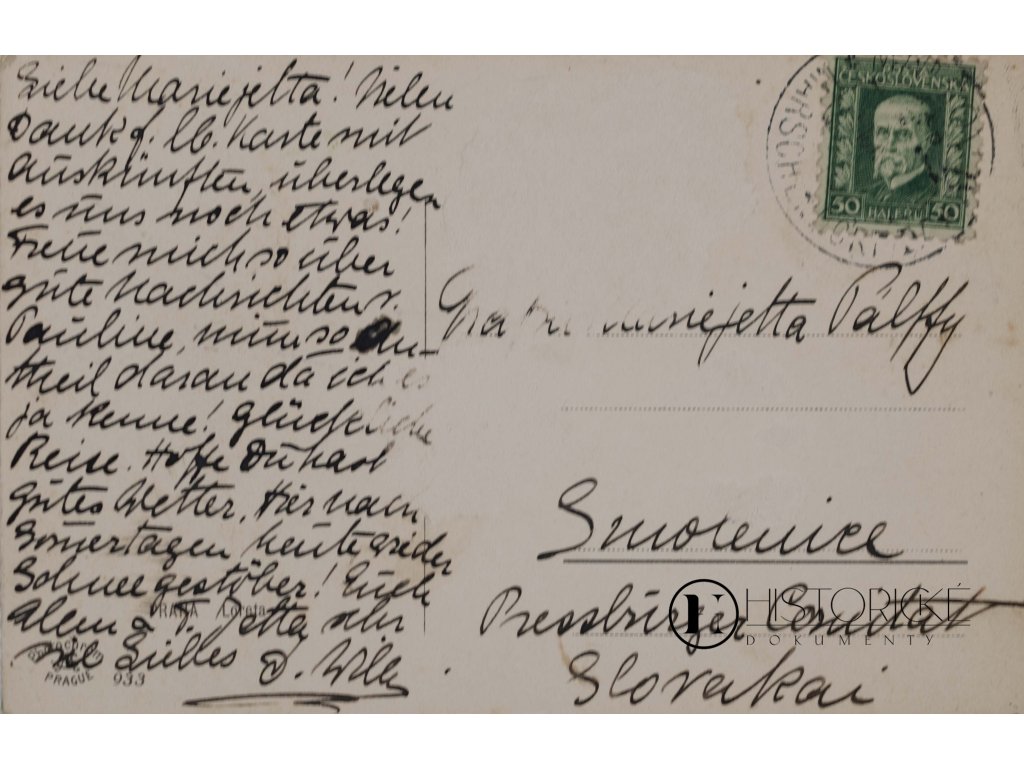 Liebe Mariejetta! Vielen
Dank f. lb. Karte mit
Auskünften, überlegen
es uns noch etwas!
Freue mich so über
gute Nachrichten v.
Pauline, nimm so An-
theil daran da ich es
ja kenne! Glückliche
Reise. Hoffe Du hast
gutes Wetter. Hier nach
Somertagen heute wieder
Schneegestöber! Euch
allen
Jetta sehr
viel Liebes
D. Willy
PRAHA Loreta
PRAGUE 933
ČESKOSLOVENSKO
50 HALÉŘŮ 50
HIRSCH
Mariejetta Pálffy
Smolenice
Pressburger Comitat
Slovakai
HISTORICKÉ
DOKUMENTY